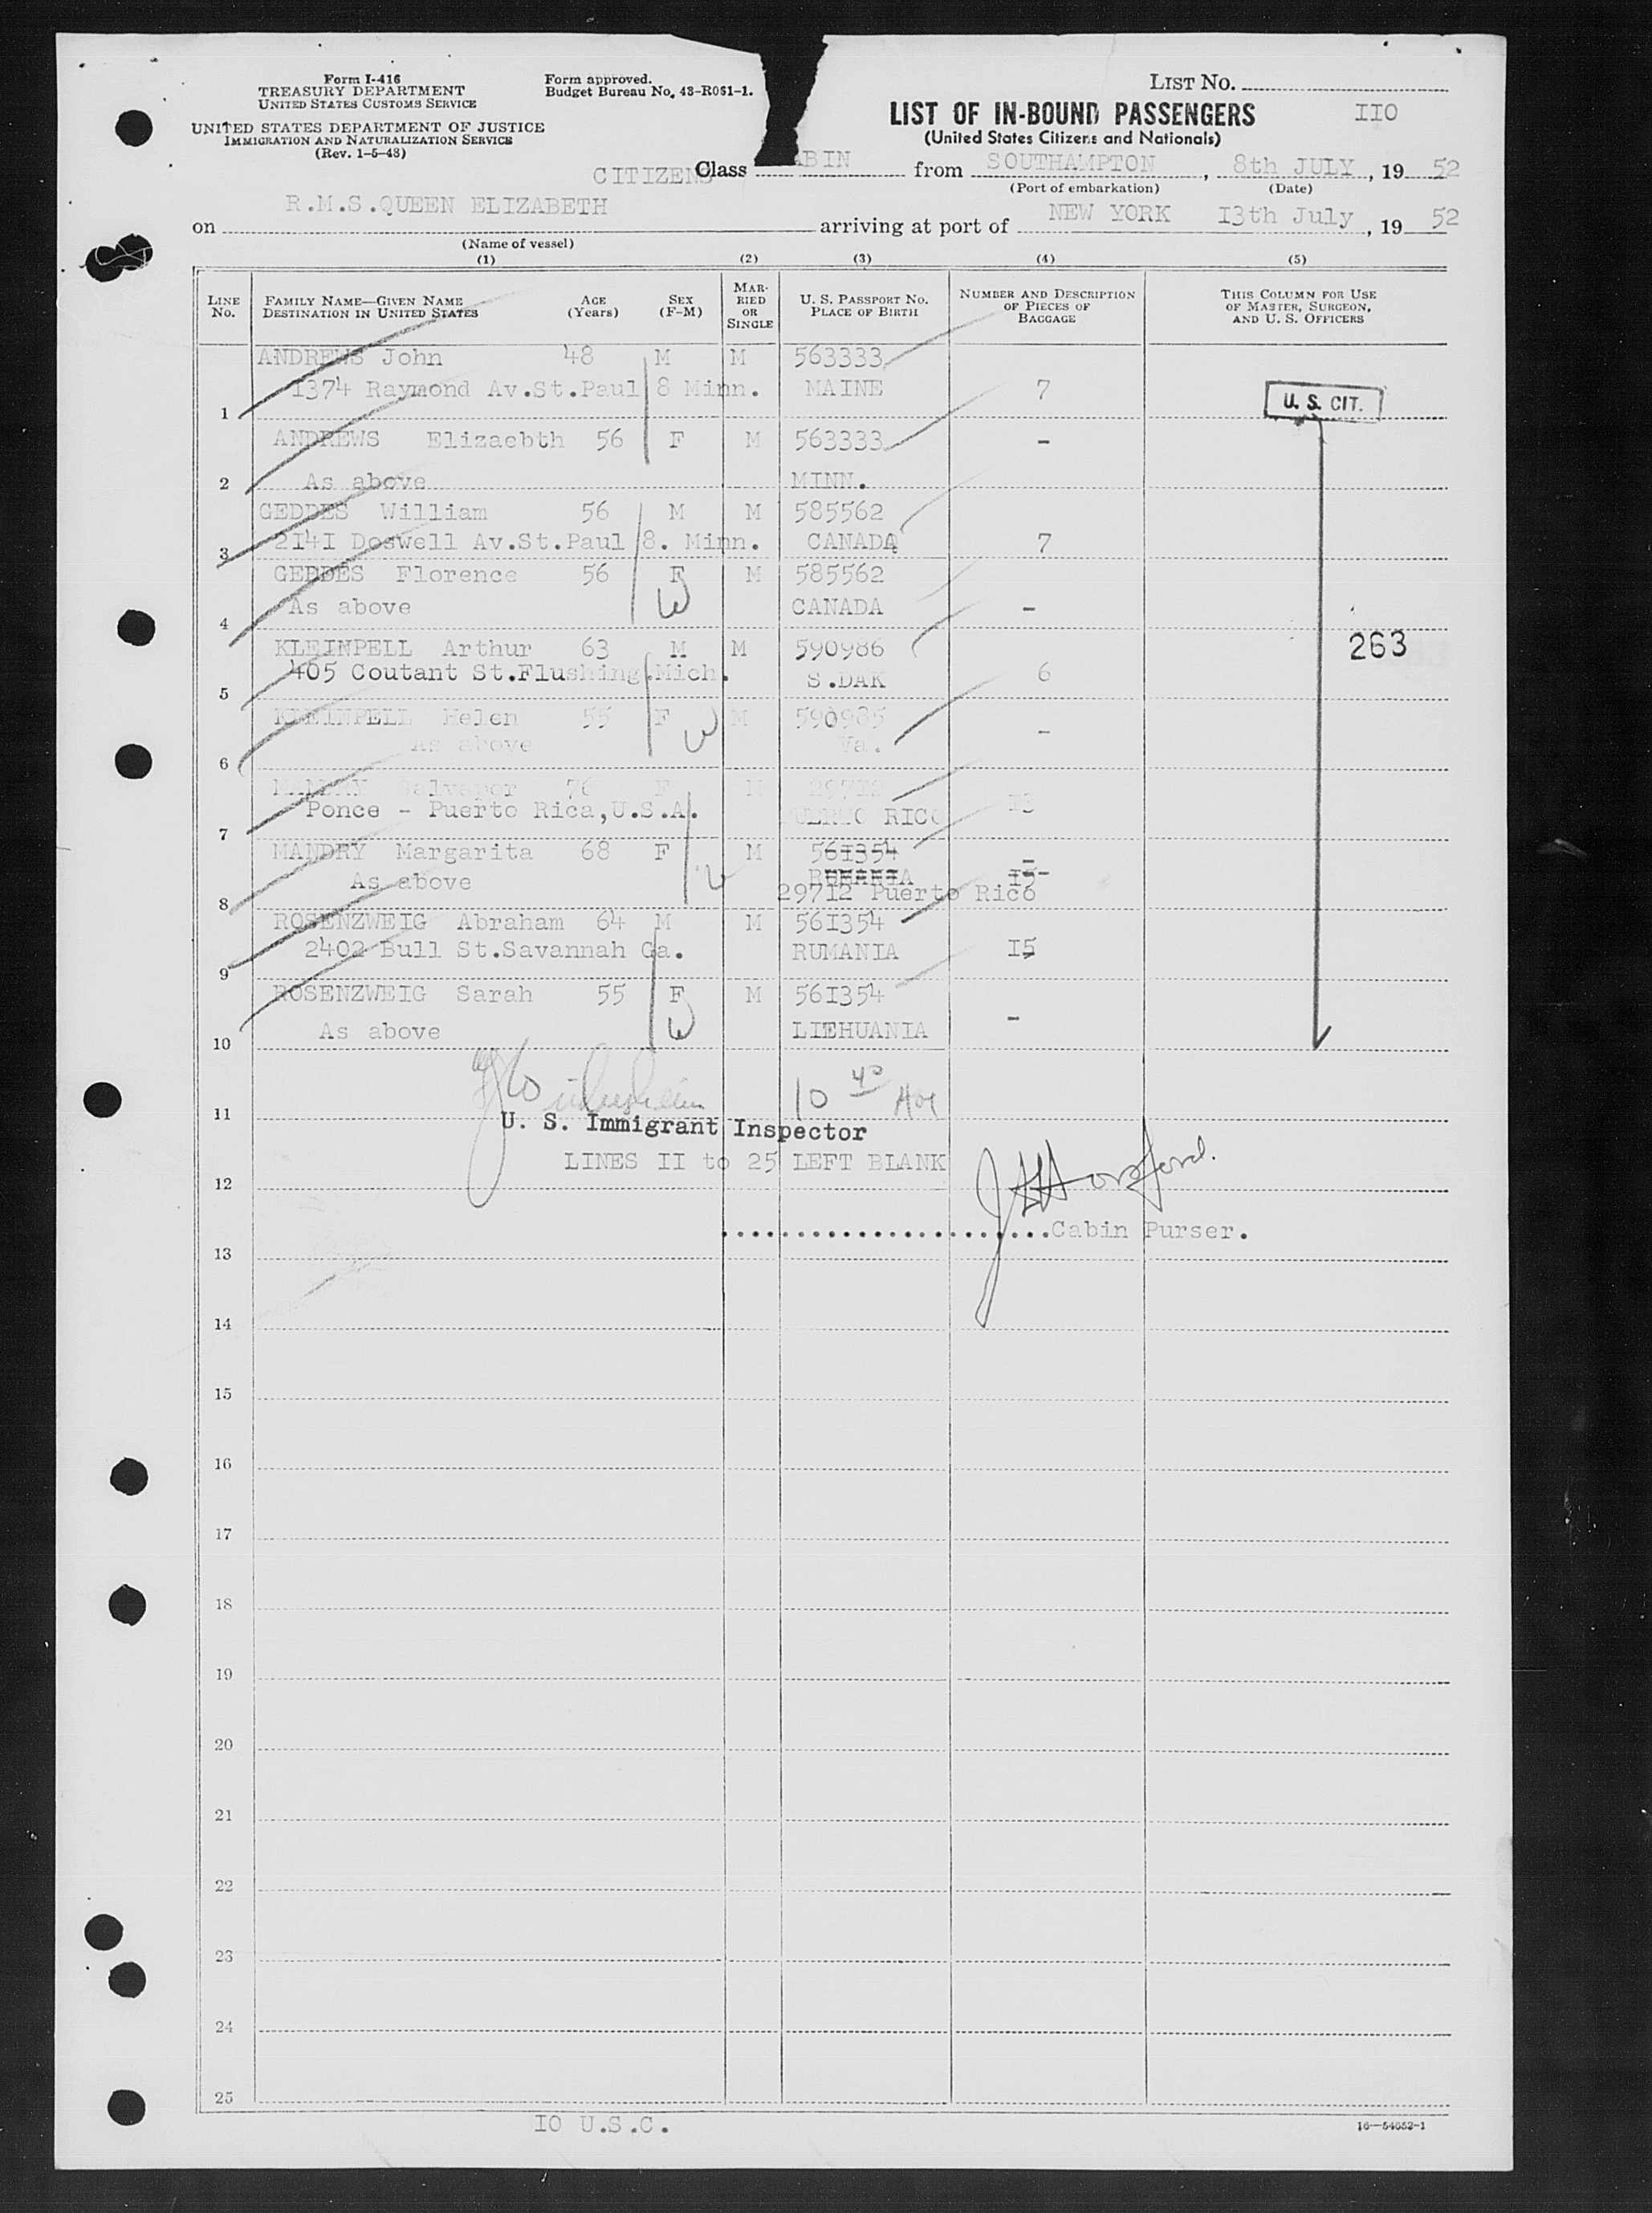 Form I-416
TREASURY DEPARTMENT
UNITED STATES CUSTOMS SERVICE
UNITED STATES DEPARTMENT OF JUSTICE
IMMIGRATION AND NATURALIZATION SERVICE
(Rev. 1-5-48)
Form approved.
Budget Bureau No. 43-R081-1.
LIST NO.
LIST OF IN-BOUND PASSENGERS IIO
(United States Citizens and Nationals)
CITIZENS Class ABIN from SOUTHAMPTON, 8th JULY, 19 52
(Port of embarkation) (Date)
on R.M.S.QUEEN ELIZABETH arriving at port of NEW YORK I3th July, 19 52
(Name of vessel)
(1) (2) (3) (4) (5)
LINE NO. FAMILY NAME—GIVEN NAME DESTINATION IN UNITED STATES AGE (Years) SEX (F-M) MARRIED OR SINGLE U. S. PASSPORT NO. PLACE OF BIRTH NUMBER AND DESCRIPTION OF PIECES OF BAGGAGE THIS COLUMN FOR USE OF MASTER, SURGEON, AND U. S. OFFICERS
ANDREWS John 48 M M 563333
1 I374 Raymond Av.St.Paul 8 Minn. MAINE 7 U. S. CIT.
ANDREWS Elizaebth 56 F M 563333 -
2 As above MINN.
GEDDES William 56 M M 585562
3 2I4I Doswell Av.St.Paul 8. Minn. CANADA 7
GEDDES Florence 56 F M 585562
4 As above W CANADA -
KLEINPELL Arthur 63 M M 590986 263
5 405 Coutant St.Flushing.Mich. S.DAK 6
KLEINPELL Helen 55 F M 590985
6 As above W Va. -
MANDRY Salvador 76 F M 29712
7 Ponce - Puerto Rica,U.S.A. PUERTO RICO
MANDRY Margarita 68 F M 56I354 -
As above RUMANIA I5-
8 29712 Puerto Rico
ROSENZWEIG Abraham 64 M M 56I354
9 2402 Bull St.Savannah Ga. RUMANIA I5
ROSENZWEIG Sarah 55 F M 56I354
10 As above W LIEHUANIA -
10 40
11
U. S. Immigrant Inspector
12 LINES II to 25 LEFT BLANK
Cabin Purser.
13
14
15
16
17
18
19
20
21
22
23
24
25
IO U.S.C.
16—54652-1